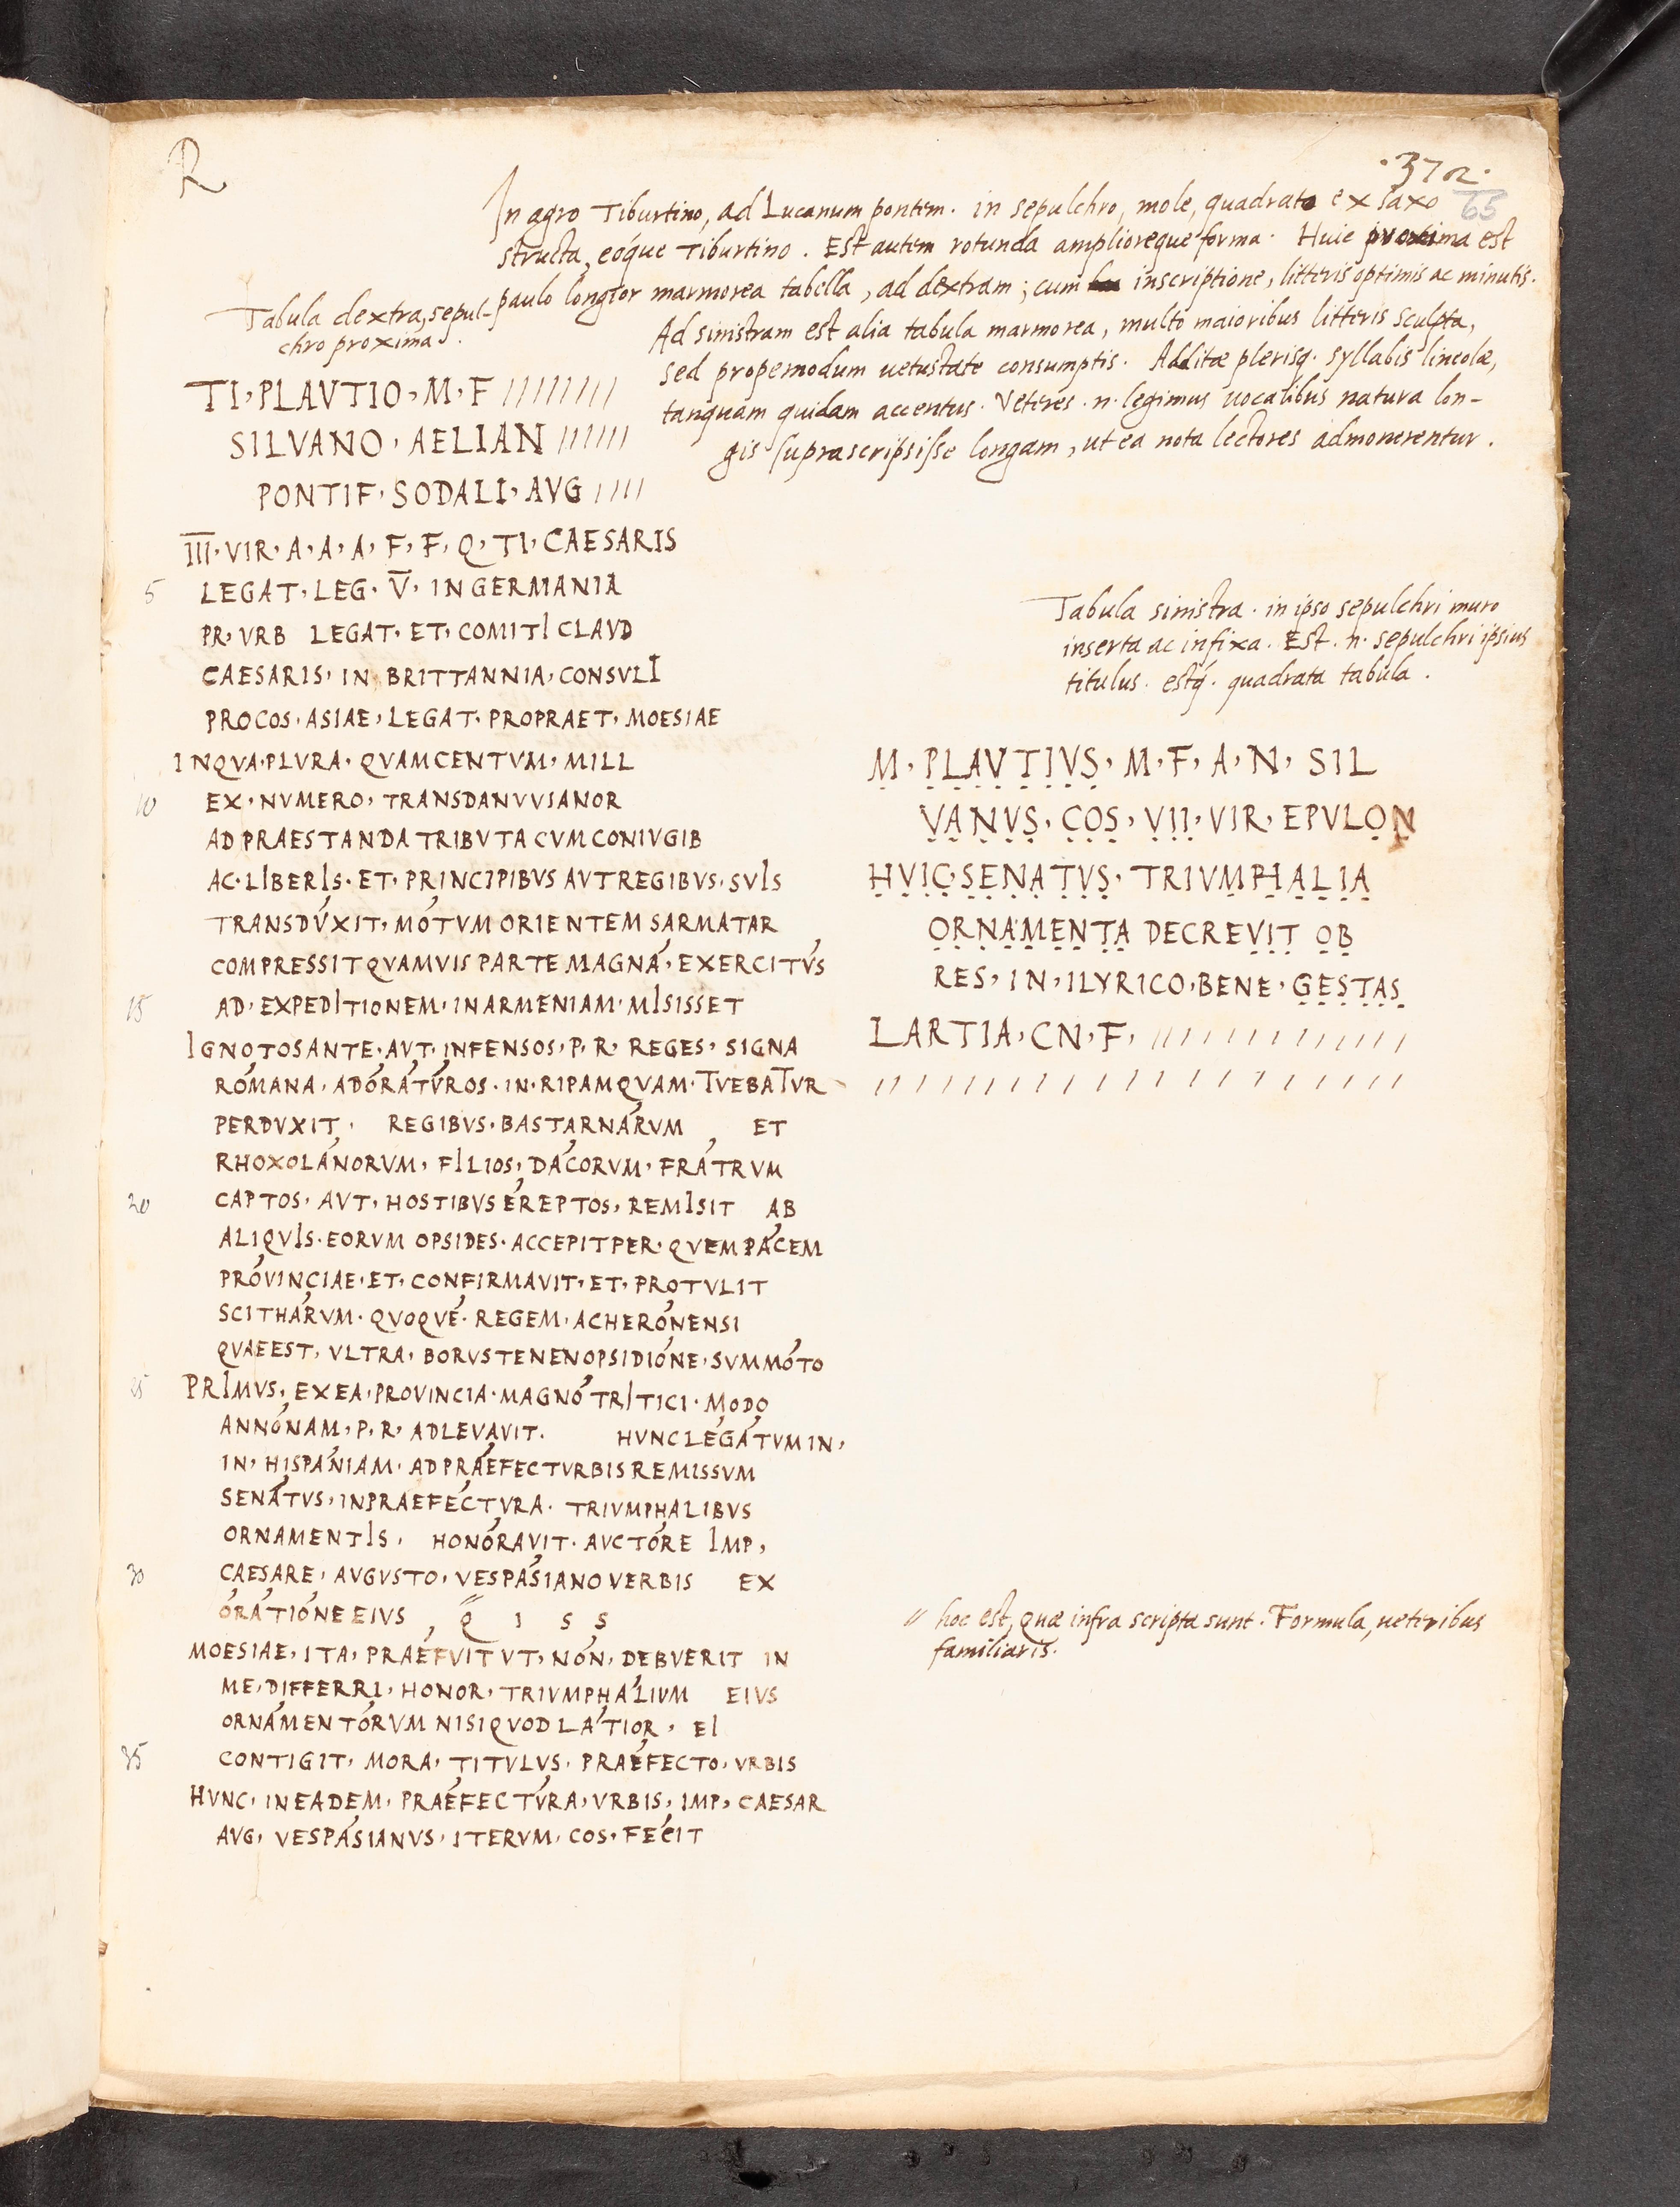 R
.372.
65
In agro Tiburtino, ad Lucanum pontem. in sepulchro, mole, quadrato ex saxo
structa, eóque Tiburtino. Est autem rotunda amplioreque forma. Huic proxima est
paulo longior marmorea tabella, ad dextram; cum inscriptione, litteris optimis ac minutis.
Ad sinistram est alia tabula marmorea, multo maioribus litteris sculpta,
sed propemodum uetustate consumptis. Additæ plerisq. syllabis lineolæ,
tanquam quidam accentus. Veteres .n. legimus uocalibus natura lon-
gis suprascripsisse longam, ut ea nota lectores admonerentur.
Tabula dextra, sepul-
chro proxima.
TI, PLAVTIO, M, F ////////
SILVANO, AELIAN //////
PONTIF, SODALI, AVG ////
III, VIR, A, A, A, F, F, Q, TI, CAESARIS
5 LEGAT, LEG. V. IN GERMANIA
PR, VRB LEGAT, ET, COMITI CLAVD
CAESARIS, IN BRITTANNIA, CONSVLI
PROCOS, ASIAE, LEGAT, PROPRAET, MOESIAE
INQVA, PLVRA, QVAMCENTVM, MILL
10 EX, NVMERO, TRANSDANVVIANOR
AD PRAESTANDA TRIBVTA CVM CONIVGIB
AC. LIBERIS. ET, PRINCIPIBVS AVT REGIBVS, SVIS
TRANSDV́XIT, MÓTVM ORIENTEM SARMATAR
COMPRESSIT QVAMVIS PARTE MAGNÁ, EXERCITV́S
15 AD, EXPEDITIONEM, INARMENIAM, MISISSET
IGNOTOS ANTE, AVT, INFENSOS, P, R, REGES, SIGNA
RÓMANA, ADÓRÁTV́ROS, IN, RIPAM QVAM, TVEBATVR
PERDVXIT, REGIBVS, BASTARNÁRVM ET
RHOXOLÁNORVM, FILIOS, DÁCORVM, FRÁTRVM
20 CAPTOS, AVT, HOSTIBVS ÉREPTOS, REMISIT AB
ALIQVIS, EORVM OPSIDES, ACCEPIT PER, QVEM PÁCEM
PRÓVINCIAE, ET, CONFIRMAVIT, ET, PROTVLIT
SCITHÁRVM, QVOQVÉ, REGEM, ACHERÓNENSI
QVAE EST, VLTRA, BORVSTENEN OPSIDIÓNE, SVMMÓTO
25 PRIMVS, EXEA, PROVINCIA, MAGNÓ TRITICI, MODO
ANNÓNAM, P, R, ADLEVAVIT. HVNC LÉGÁTVM IN,
IN, HISPÁNIAM, AD PRAÉFECT VRBIS REMISSVM
SENÁTVS, INPRAEFÉCTVRA, TRIVMPHALIBVS
ORNAMENTIS, HONÓRAVIT, AVCTÓRE IMP,
30 CAESARE, AVGVSTO, VESPÁSIANO VERBIS EX
ÓRÁTIÓNE EIVS " Q I S S
MOESIAE, ITA, PRAÉFVIT VT, NÓN, DEBVERIT IN
ME, DIFFERRI, HONOR, TRIVMPHÁLIVM EIVS
ORNÁMENTÓRVM NISI QVOD LÁTIOR, EI
35 CONTIGIT, MORA, TITVLVS, PRAÉFECTO, VRBIS
HVNC, IN EADEM, PRAÉFECTV́RA, VRBIS, IMP, CAESAR
AVG, VESPÁSIANVS, ITERVM, COS, FÉCIT
Tabula sinistra. in ipso sepulchri muro
inserta ac infixa. Est .n. sepulchri ipsius
titulus. estq́. quadrata tabula.
M, PLAVTIVS, M, F, A, N, SIL
VANVS, COS, VII, VIR, EPVLON
HVIC, SENATVS, TRIVMPHALIA
ORNAMENTA DECREVIT OB
RES, IN, ILYRICO, BENE, GESTAS
LARTIA, CN, F, /////////////
////////////////////
" hoc est, quæ infra scripta sunt. Formula, ueteribus
familiaris.